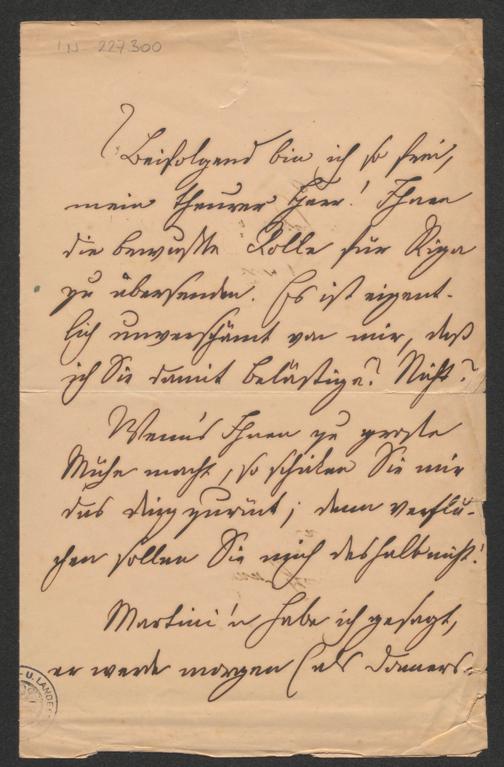 IN 227.300
Beifolgend bin ich so frei,
mein theurer Herr! Ihnen
die bewußte Rolle für Riga
zu übersenden. Es ist eigent-
lich unverschämt von mir, daß
ich Sie damit belästige? Nicht?
Wenn's Ihnen zu große
Mühe macht, so schicken Sie mir
das Ding zurück; denn verflu-
chen sollen Sie mich deshalb nicht!
Martini'n habe ich gesagt,
er werde morgen (als Donners-
U. LANDE